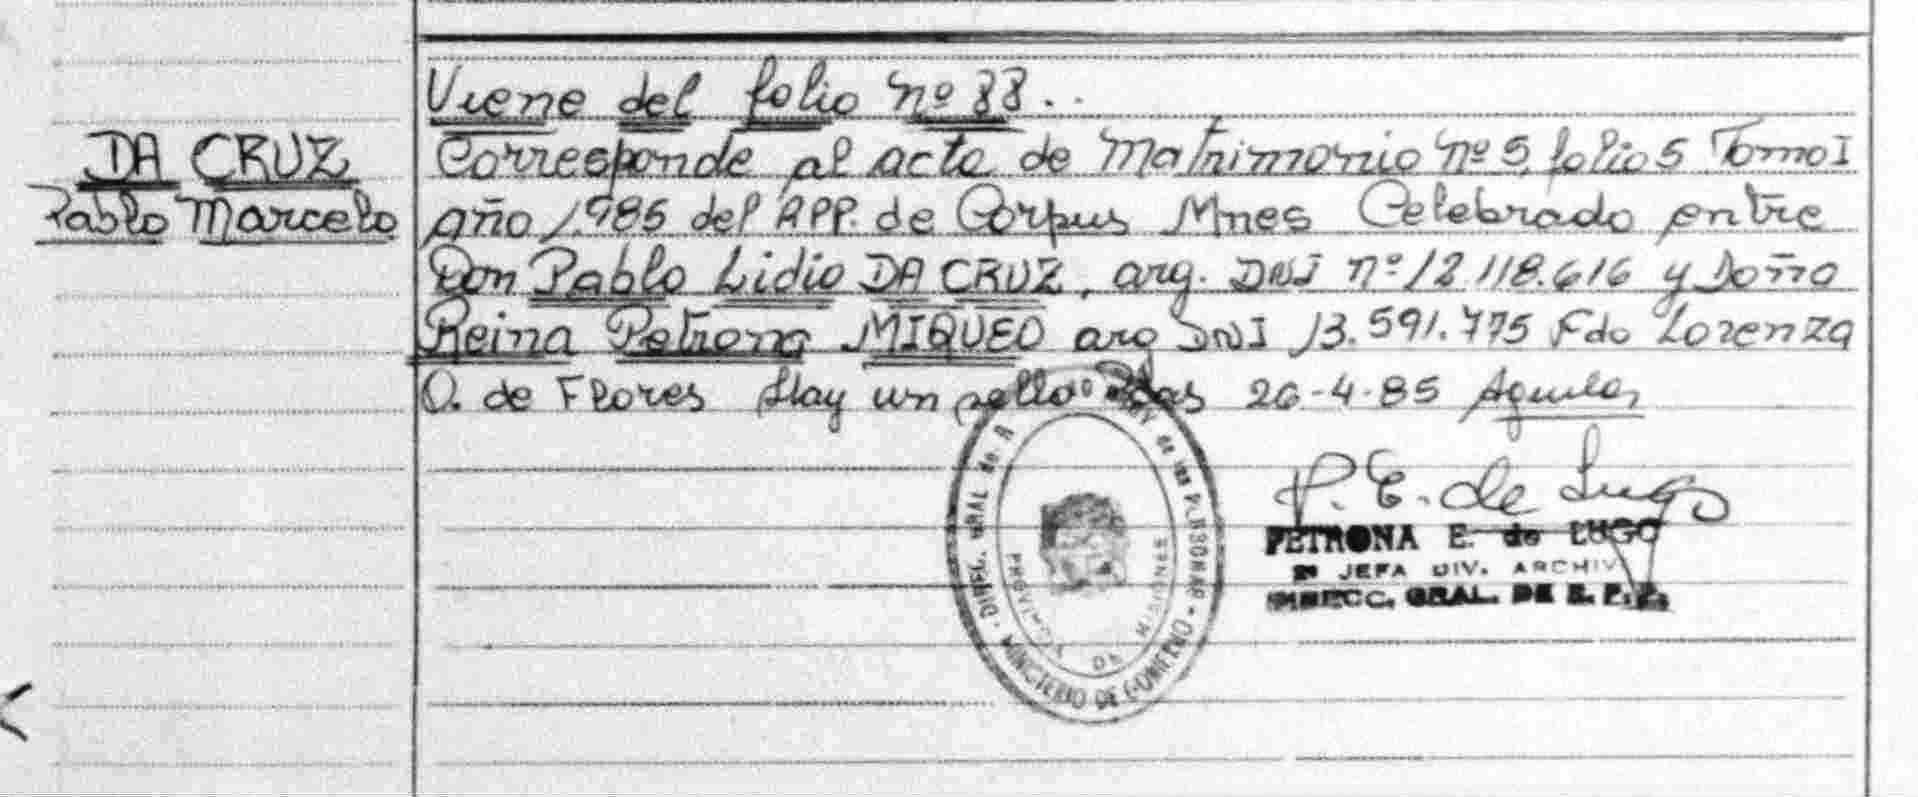 Viene del folio nº 88..
DA CRUZ
Pablo Marcelo
Corresponde al acta de Matrimonio nº 5, folio 5 Tomo I
año 1.985 del APP. de Corpus Mnes Celebrado entre
Don Pablo Lidio DA CRUZ, arg. DNI nº 12.118.616 y Doña
Reina Petrona MIQUEO arg DNI 13.591.775 Fdo Lorenza
O. de Flores Hay un sello 26-4-85
P. E. de Lugo
PETRONA E. de LUGO
JEFA DIV. ARCHIV
DIRECC. GRAL. DE R. P. P.
MINISTERIO DE GOBIERNO
PROVINCIA DE MISIONES